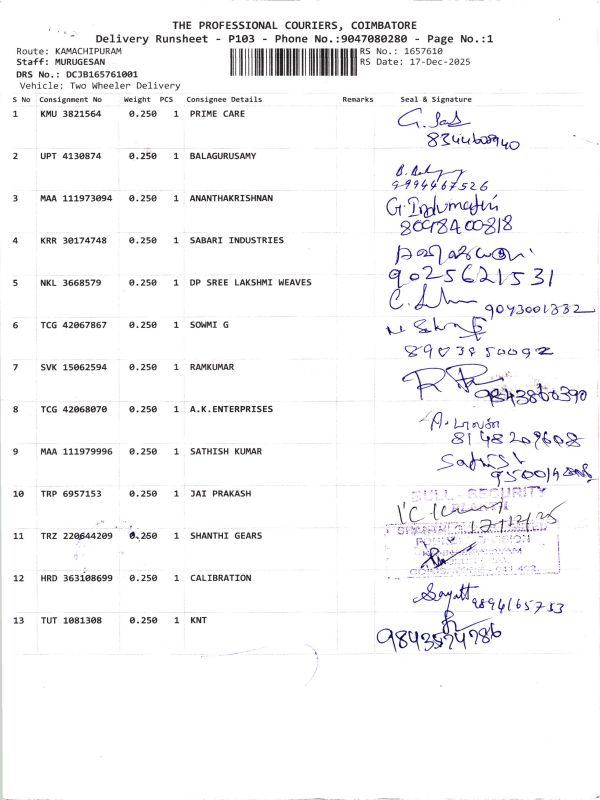 THE PROFESSIONAL COURIERS, COIMBATORE
Delivery Runsheet - P103 - Phone No.:9047080280 - Page No.:1
Route: KAMACHIPURAM RS No.: 1657610
Staff: MURUGESAN RS Date: 17-Dec-2025
DRS No.: DCJB165761001
Vehicle: Two Wheeler Delivery
S No Consignment No Weight PCS Consignee Details Remarks Seal & Signature
1 KMU 3821564 0.250 1 PRIME CARE
8344600940
2 UPT 4130874 0.250 1 BALAGURUSAMY
9994467526
3 MAA 111973094 1 0.250 ANANTHAKRISHNAN G. Indumathi
8098400818
4 KRR 30174748 0.250 1 SABARI INDUSTRIES
9025621531
5 NKL 3668579 0.250 1 DP SREE LAKSHMI WEAVES
9043001332
6 TCG 42067867 0.250 1 SOWMI G
8903850092
7 SVK 15062594 0.250 1 RAMKUMAR
9843860390
8 TCG 42068070 0.250 1 A.K.ENTERPRISES
8148209608
9 MAA 111979996 0.250 1 SATHISH KUMAR Sathish
10 TRP 6957153 0.250 1 JAI PRAKASH
SECURITY
17/12/25
11 TRZ 220644209 0.250 1 SHANTHI GEARS
12 HRD 363108699 0.250 1 CALIBRATION
9894165753
13 TUT 1081308 0.250 1 KNT
9843574786